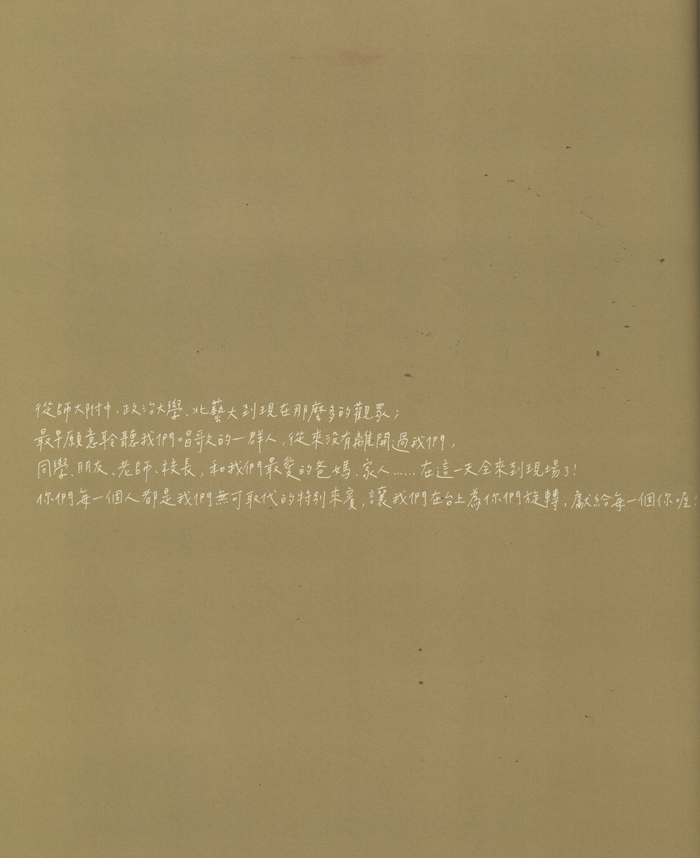 從師大附中、政治大學、北藝大到現在那麼多的觀眾；
最早願意聆聽我們唱歌的一群人，從來沒有離開過我們，
同學、朋友、老師、校長，和我們最愛的爸媽、家人……在這一天全來到現場了！
你們每一個人都是我們無可取代的特別來賓，讓我們在台上為你們旋轉，獻給每一個你喔！